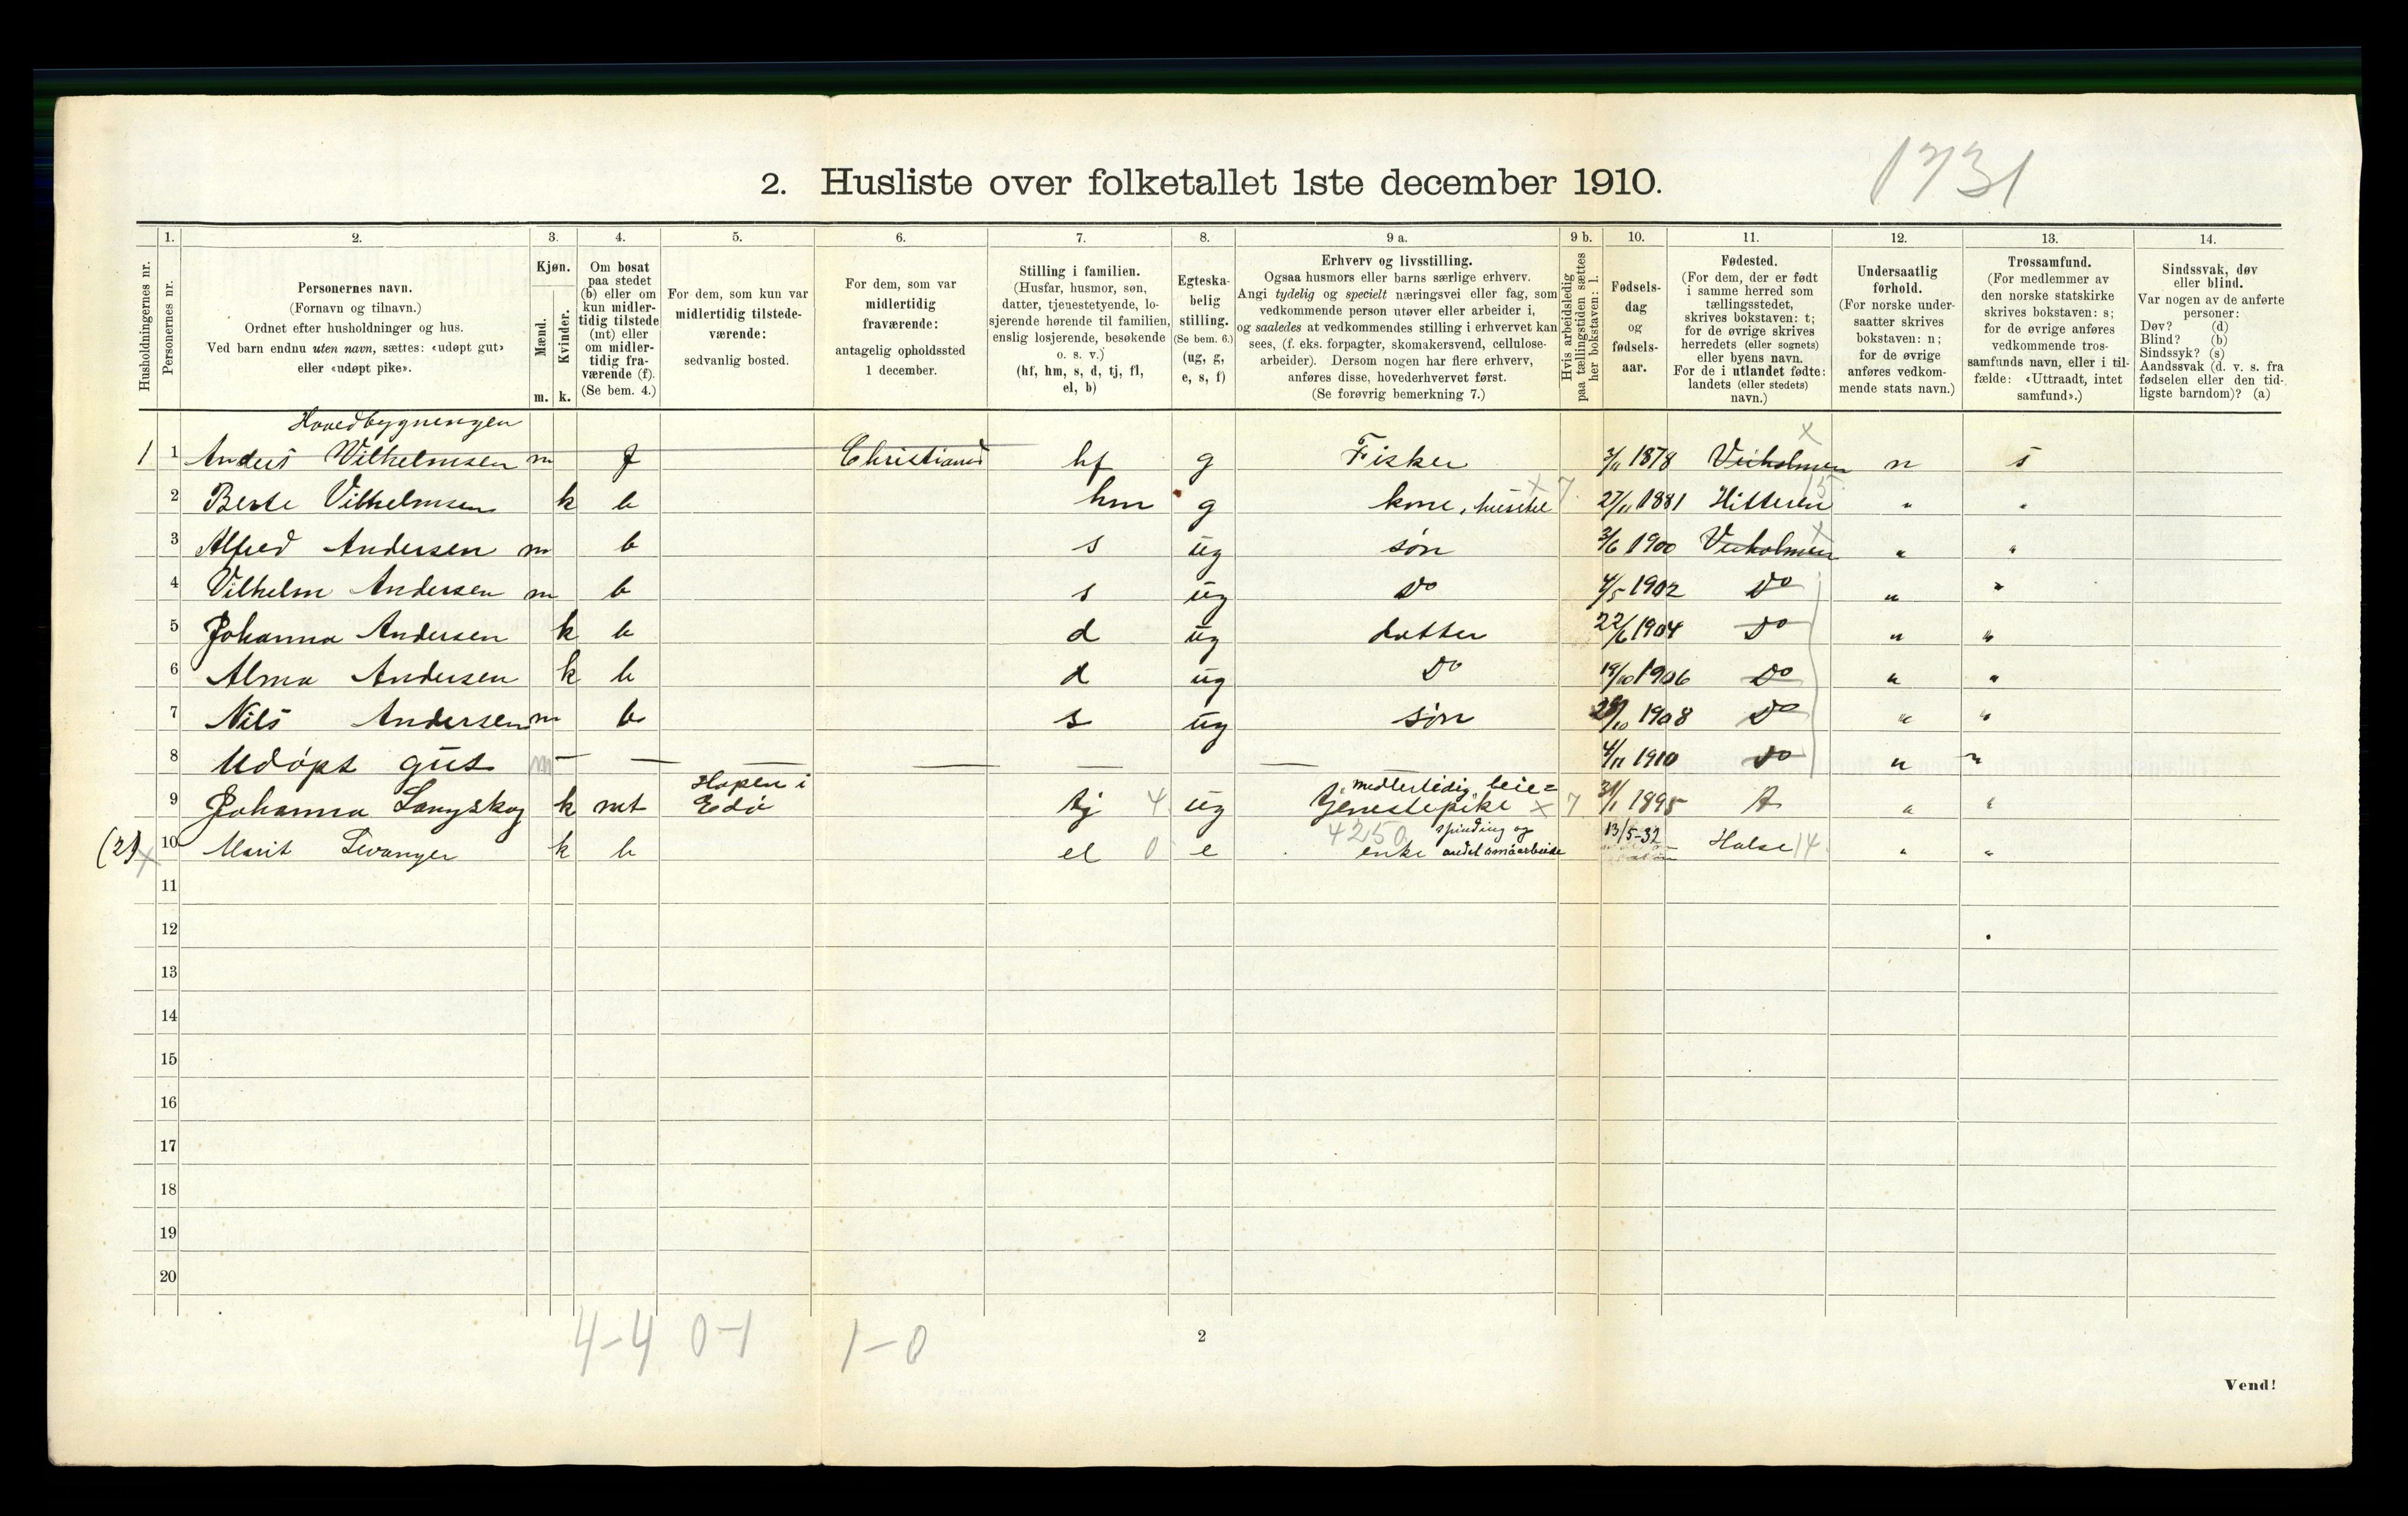 1731
2. Husliste over folketallet 1ste december 1910.
1. 2. 3. 4. 5. 6. 7. 8. 9 a. 9 b. 10. 11. 12. 13. 14.
Husholdningernes nr.
Personernes nr.
Personernes navn.
(Fornavn og tilnavn.)
Ordnet efter husholdninger og hus.
Ved barn endnu uten navn, sættes: «udøpt gut»
eller «udøpt pike».
Kjøn.
Mænd.
Kvinder.
m. k.
Om bosat
paa stedet
(b) eller om
kun midler-
tidig tilstede
(mt) eller
om midler-
tidig fra-
værende (f).
(Se bem. 4.)
For dem, som kun var
midlertidig tilstede-
værende:
sedvanlig bosted.
For dem, som var
midlertidig
fraværende:
antagelig opholdssted
1 december.
Stilling i familien.
(Husfar, husmor, søn,
datter, tjenestetyende, lo-
sjerende hørende til familien,
enslig losjerende, besøkende
o. s. v.)
(hf, hm, s, d, tj, fl,
el, b)
Egteska-
belig
stilling.
(Se bem. 6.)
(ug, g,
e, s, f)
Erhverv og livsstilling.
Ogsaa husmors eller barns særlige erhverv.
Angi tydelig og specielt næringsvei eller fag, som
vedkommende person utøver eller arbeider i,
og saaledes at vedkommendes stilling i erhvervet kan
sees, (f. eks. forpagter, skomakersvend, cellulose-
arbeider). Dersom nogen har flere erhverv,
anføres disse, hovederhvervet først.
(Se forøvrig bemerkning 7.)
Hvis arbeidsledig
paa tællingstiden sættes
her bokstaven: l.
Fødsels-
dag
og
fødsels-
aar.
Fødested.
(For dem, der er født
i samme herred som
tællingsstedet,
skrives bokstaven: t;
for de øvrige skrives
herredets (eller sognets)
eller byens navn.
For de i utlandet fødte:
landets (eller stedets)
navn.)
Undersaatlig
forhold.
(For norske under-
saatter skrives
bokstaven: n;
for de øvrige
anføres vedkom-
mende stats navn.)
Trossamfund.
(For medlemmer av
den norske statskirke
skrives bokstaven: s;
for de øvrige anføres
vedkommende tros-
samfunds navn, eller i til-
fælde: «Uttraadt, intet
samfund».)
Sindssvak, døv
eller blind.
Var nogen av de anførte
personer:
Døv? (d)
Blind? (b)
Sindssyk? (s)
Aandssvak (d. v. s. fra
fødselen eller den tid-
ligste barndom)? (a)
Hovedbygningen
1 1 Anders Vilhelmsen m f Christiansd hf g Fisker 3/11 1878 Veiholmen x n s
2 Berte Vilhelmsen k b hm g kone, husstel x 7 27/11 1881 Hitteren 15 " "
3 Alfred Andersen m b s ug søn 3/6 1900 Veiholmen x " "
4 Vilhelm Andersen m b s ug Do 4/5 1902 Do " "
5 Johanna Andersen k b d ug datter 22/6 1904 Do " "
6 Alma Andersen k b d ug Do 19/10 1906 Do " "
7 Nils Andersen m b s ug søn 28/10 1908 Do " "
8 Udøpt gut m — — — — — — — 4/11 1910 Do " "
Hopen i midlertidig, leie=
9 Johanna Langskog k mt Edø tj 4 ug tjenestepike x 7 31/1 1895 t " "
4250 spinding og
(2) x 10 Marit Levanger k b el 0 e enke andet småarbeide 13/5-32 Halse 14 " "
11
12
13
14
15
16
17
18
19
20
4-4 0-1 1-0
2
Vend!